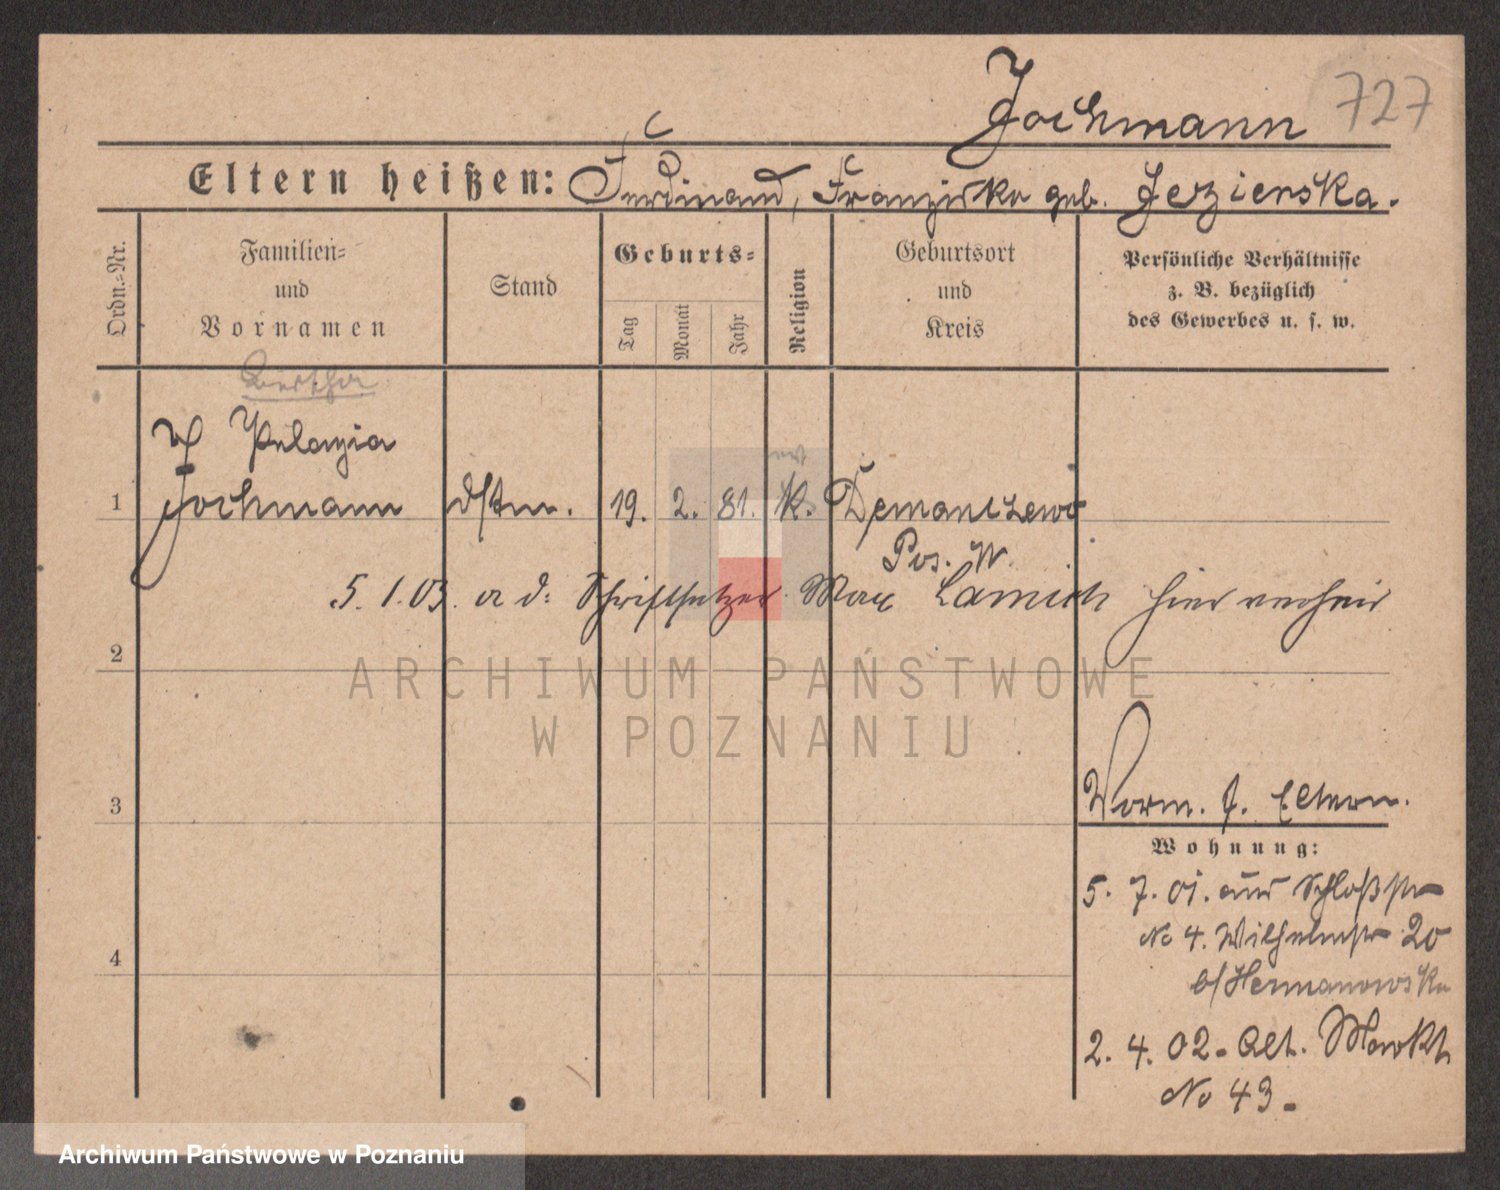 Jochmann 727
Eltern heißen: Ferdinand, Franziska geb. Jezierska.
Ordn.-Nr.
Familien-
und
Vornamen
Stand
Geburts-
Tag
Monat
Jahr
Religion
Geburtsort
und
Kreis
Persönliche Verhältnisse
z. B. bezüglich
des Gewerbes u. s. w.
Bertha
Pelagia
1 Jochmann 19. 2. 81. K. Demanczewo
Pos. W.
5. 1. 03. a d: Schriftsetzer Max Lamich hier verheir
2
ARCHIWUM PAŃSTWOWE
W POZNANIU
3
Vorm. J. Eltern.
Wohnung:
5. 7. 01. aus Schloßstr
No 4. Wilhelmstr 20
b/Hermanowska
4
2. 4. 02. Alt. Markt
No 43.
Archiwum Państwowe w Poznaniu